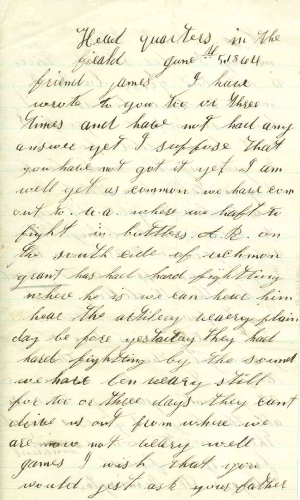 Head quarters in the
fieald June 5th 1864
friend james I have
wrote to you two or three
times and have not had any
answer yet I suppose that
you have not got it yet I am
well yet as common we have com
out to va. where we haft to
fight in buttlers A R. on
the south side of richmon
grant has had hard fightting
where he is we can hear him
hear the artilery veary plain
day be fore yestaday they had
hard fightting by the sound
we have ben veary still
for two or three days they cant
drive us out from where we
are now not veary well
james I wish that you
would jest ask your father